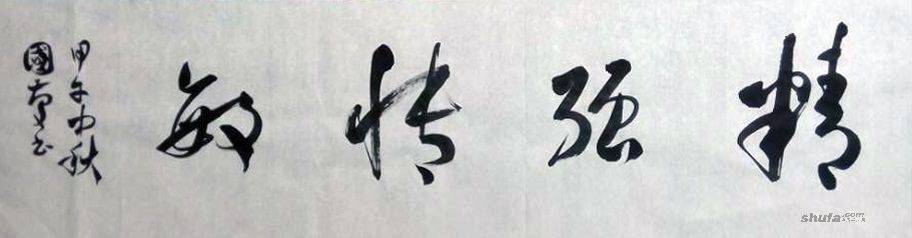 精强博敏
甲午中秋
國 书
shufa.com